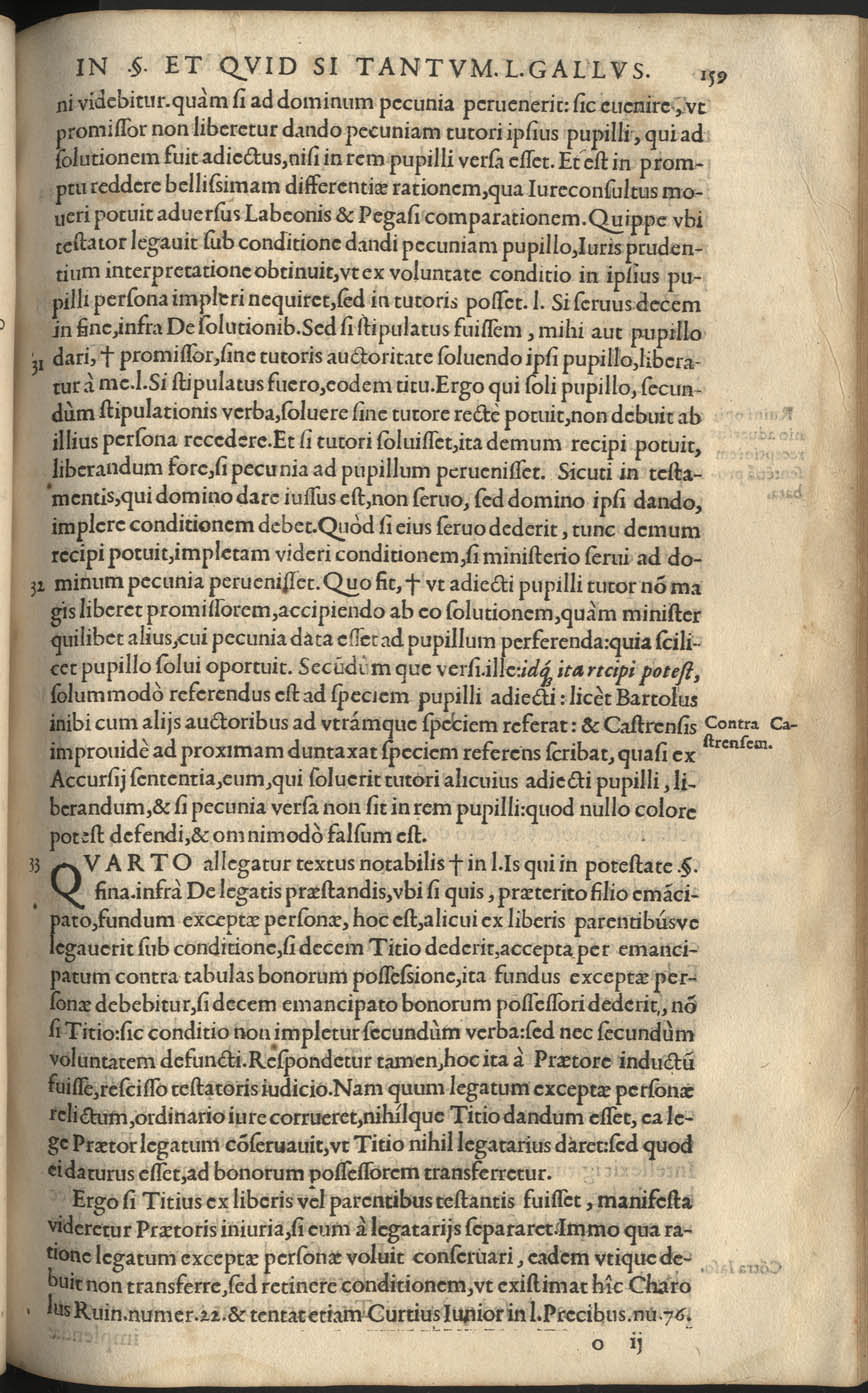 IN .§. ET QVID SI TANTVM. L. GALLVS. 159
ni videbitur. quàm si ad dominum pecunia peruenerit: sic euenire, vt
promissor non liberetur dando pecuniam tutori ipsius pupilli, qui ad
solutionem fuit adiectus, nisi in rem pupilli versa esset. Et est in prom-
ptu reddere bellissimam differentiæ rationem, qua Iureconsultus mo-
ueri potuit aduersus Labeonis & Pegasi comparationem. Quippe vbi
testator legauit sub conditione dandi pecuniam pupillo, Iuris pruden-
tium interpretatione obtinuit, vt ex voluntate conditio in ipsius pu-
pilli persona impleri nequiret, sed in tutoris posset. l. Si seruus decem
in fine, infra De solutionib. Sed si stipulatus fuissem, mihi aut pupillo
31 dari, † promissor, sine tutoris auctoritate soluendo ipsi pupillo, libera-
tur à me. l. Si stipulatus fuero, eodem titu. Ergo qui soli pupillo, secun-
dùm stipulationis verba, soluere sine tutore rectè potuit, non debuit ab
illius persona recedere. Et si tutori soluisset, ita demum recipi potuit,
liberandum fore, si pecunia ad pupillum peruenisset. Sicuti in testa-
mentis, qui domino dare iussus est, non seruo, sed domino ipsi dando,
implere conditionem debet. Quòd si eius seruo dederit, tunc demum
recipi potuit, impletam videri conditionem, si ministerio serui ad do-
32 minum pecunia peruenisset. Quo fit, † vt adiecti pupilli tutor nõ ma
gis liberet promissorem, accipiendo ab eo solutionem, quàm minister
quilibet alius, cui pecunia data esset ad pupillum perferenda: quia scili-
cet pupillo solui oportuit. Secũdùm que versi. ille: idq́; ita recipi potest,
solummodò referendus est ad speciem pupilli adiecti: licèt Bartolus
inibi cum alijs auctoribus ad vtrámque speciem referat: & Castrensis
Contra Ca-
strensem.
improuidè ad proximam duntaxat speciem referens scribat, quasi ex
Accursij sententia, eum, qui soluerit tutori alicuius adiecti pupilli, li-
berandum, & si pecunia versa non sit in rem pupilli: quod nullo colore
potest defendi, & omnimodò falsum est.
33 QVARTO allegatur textus notabilis † in l. Is qui in potestate .§.
fina. infrà De legatis præstandis, vbi si quis, præterito filio emãci-
pato, fundum exceptæ personæ, hoc est, alicui ex liberis parentibúsve
legauerit sub conditione, si decem Titio dederit, accepta per emanci-
patum contra tabulas bonorum possessione, ita fundus exceptæ per-
sonæ debebitur, si decem emancipato bonorum possessori dederit, nõ
si Titio: sic conditio non impletur secundùm verba: sed nec secundùm
voluntatem defuncti. Respondetur tamen, hoc ita à Prætore inductũ
fuisse, rescisso testatoris iudicio. Nam quum legatum exceptæ personæ
relictum, ordinario iure corrueret, nihílque Titio dandum esset, ea le-
ge Prætor legatum cõseruauit, vt Titio nihil legatarius daret: sed quod
ei daturus esset, ad bonorum possessorem transferretur.
Ergo si Titius ex liberis vel parentibus testantis fuisset, manifesta
videretur Prætoris iniuria, si eum à legatarijs separaret. Immo qua ra-
tione legatum exceptæ personæ voluit conseruari, eadem vtique de-
buit non transferre, sed retinere conditionem, vt existimat hîc Charo
lus Ruin. numer. 22. & tentat etiam Curtius Iunior in l. Precibus. nu. 76.
o ij